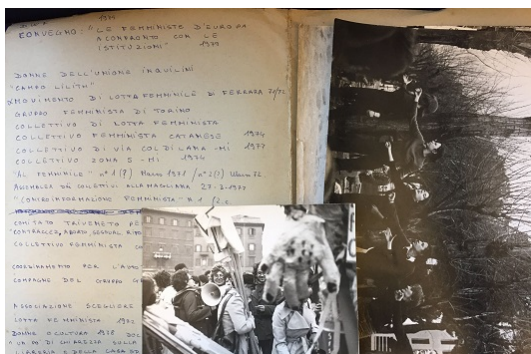 1979
CONVEGNO: "LE FEMMINISTE D'EUROPA
A CONFRONTO CON LE
ISTITUZIONI" 1979
DONNE DELL'UNIONE INQUILINI
"CAMPO LILITH"
MOVIMENTO DI LOTTA FEMMINILE DI FERRARA 71/72
GRUPPO FEMMINISTA DI TORINO
COLLETTIVO DI LOTTA FEMMINISTA
COLLETTIVO FEMMINISTA CATANESE 1974
COLLETTIVO DI VIA COL DI LANA - MI 1977
COLLETTIVO DONA 5 - MI 1974
"AL FEMMINILE" n° 1
ASSEMBLEA DEI COLLETTIVI ALLA MAGLIANA 27-3-1977
"CONTROINFORMAZIONE FEMMINISTA" N 1
COMITATO TRIVENETO PE
CONTRACCEZ, ABORTO,
COLLETTIVO FEMMINISTA
COORDINAMENTO PER L'AUTO
COMPAGNE DEL GRUPPO GR
ASSOCIAZIONE SCEGLIERE
LOTTA FEMMINISTA 197
DONNE O CULTURA 1978 DOC
DI CHIAREZZA SULLA